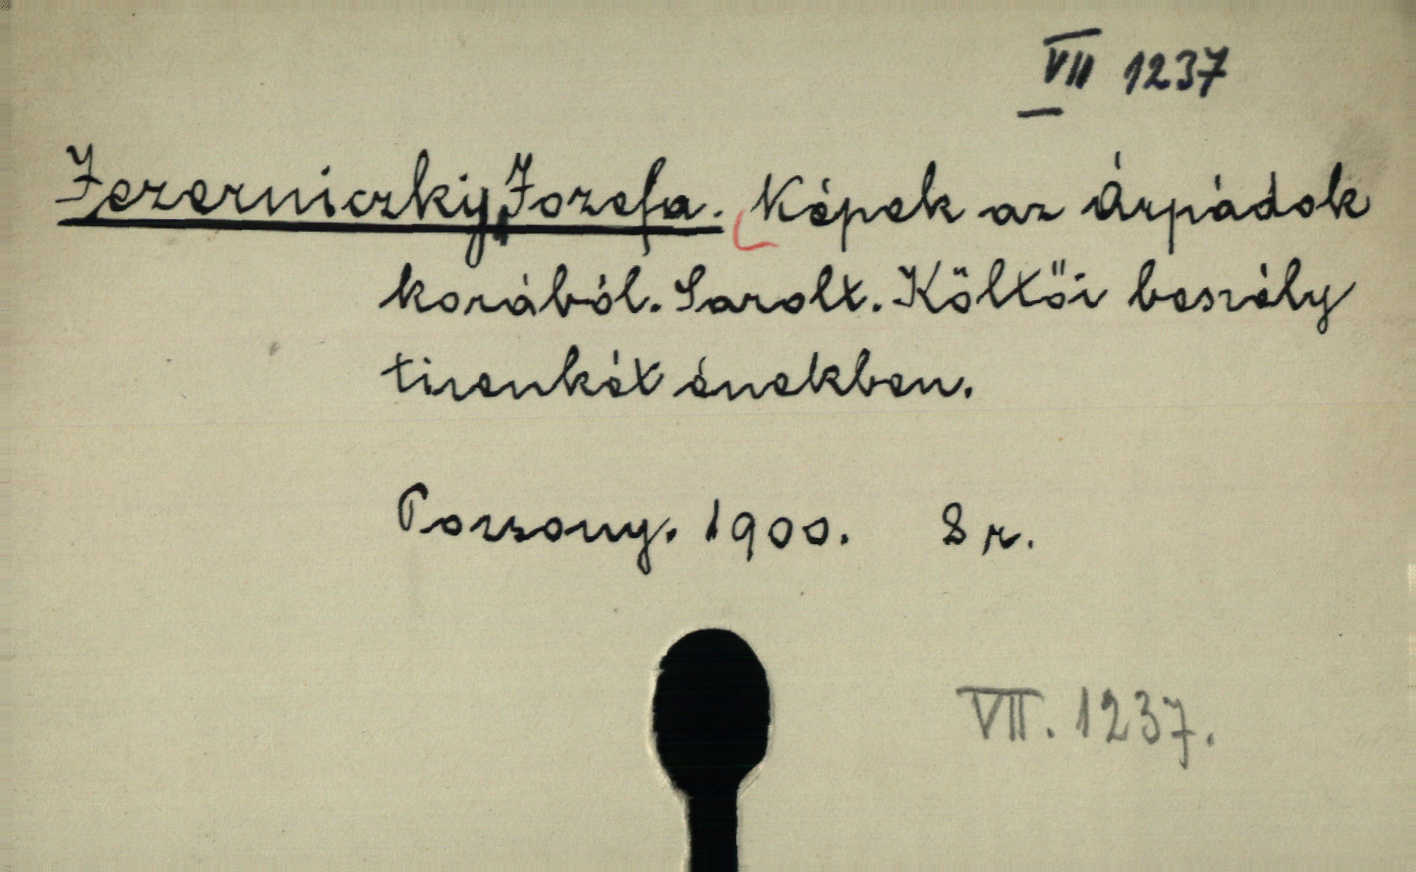 VII 1237
Jezerniczky, Jozefa. Képek az Árpádok
korából. Sarolt. Költői beszély
tizenkét énekben.
Pozsony. 1900. 8 r.
VII. 1237.